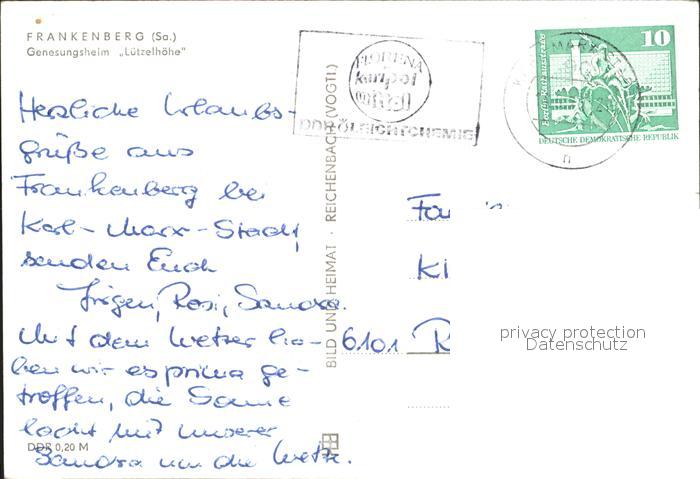 FRANKENBERG (Sa.)
Genesungsheim „Lützelhöhe"
Herzliche Urlaubs-
grüße aus
Frankenberg bei
Karl-Marx-Stadt
senden Euch
Jürgen, Rosi, Sandra.
Mit dem Wetter ha-
ben wir es prima ge-
troffen, die Sonne
lacht mit unserer
Sandra um die Wette.
DDR 0,20 M
BILD UND HEIMAT · REICHENBACH (VOGTL)
FLORENA
DDR LEICHTCHEMIE
10
DEUTSCHE DEMOKRATISCHE REPUBLIK
Fa
Ki
6101 R
privacy protection
Datenschutz